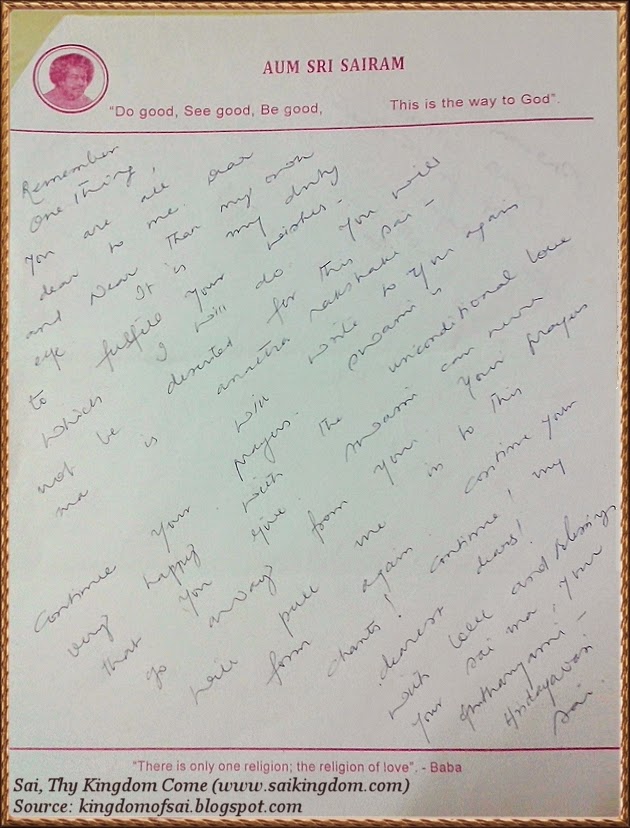 AUM SRI SAIRAM
"Do good, See good, Be good, This is the way to God".
Remember
One Thing,
You are all
dear to me. Dear
and Near than my own
eye It is my duty
to fulfill your wishes -
which I will do. You will
not be deserted for this Sai -
ma is anatha rakshaki
will write to you again
Continue your prayers. Swami is
very happy with the unconditional love
that you give. Swami can never
go away from you. Your prayers
will pull me in to this
form again. Continue your
chants! Continue! my
dearest dears!
with love and Blessings
your sai ma, your
Anthanyami -
Hridayavasi
Sai.
"There is only one religion; the religion of love". - Baba
Sai, Thy Kingdom Come (www.saikingdom.com)
Source: kingdomofsai.blogspot.com